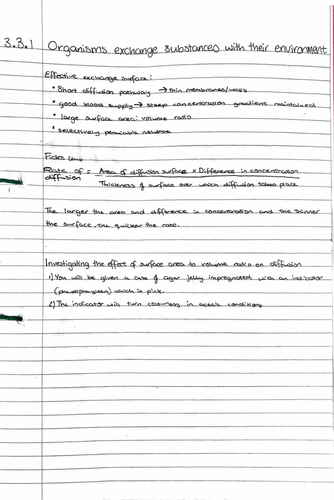 3.3.1 Organisms exchange substances with their environment
Effective exchange surface:
• Short diffusion pathway → thin membranes/walls
• good blood supply → steep concentration gradient maintained
• large surface area: volume ratio
• selectively permeable
Ficks law
Rate of = Area of diffusion surface x Difference in concentration
diffusion Thickness of surface over which diffusion takes place
The larger the area and difference in concentration and the thinner
the surface, the quicker the rate.
Investigating the effect of surface area to volume ratio on diffusion
1) You will be given a cube of agar jelly impregnated with an indicator
which is pink.
2) The indicator will turn colourless in acidic conditions